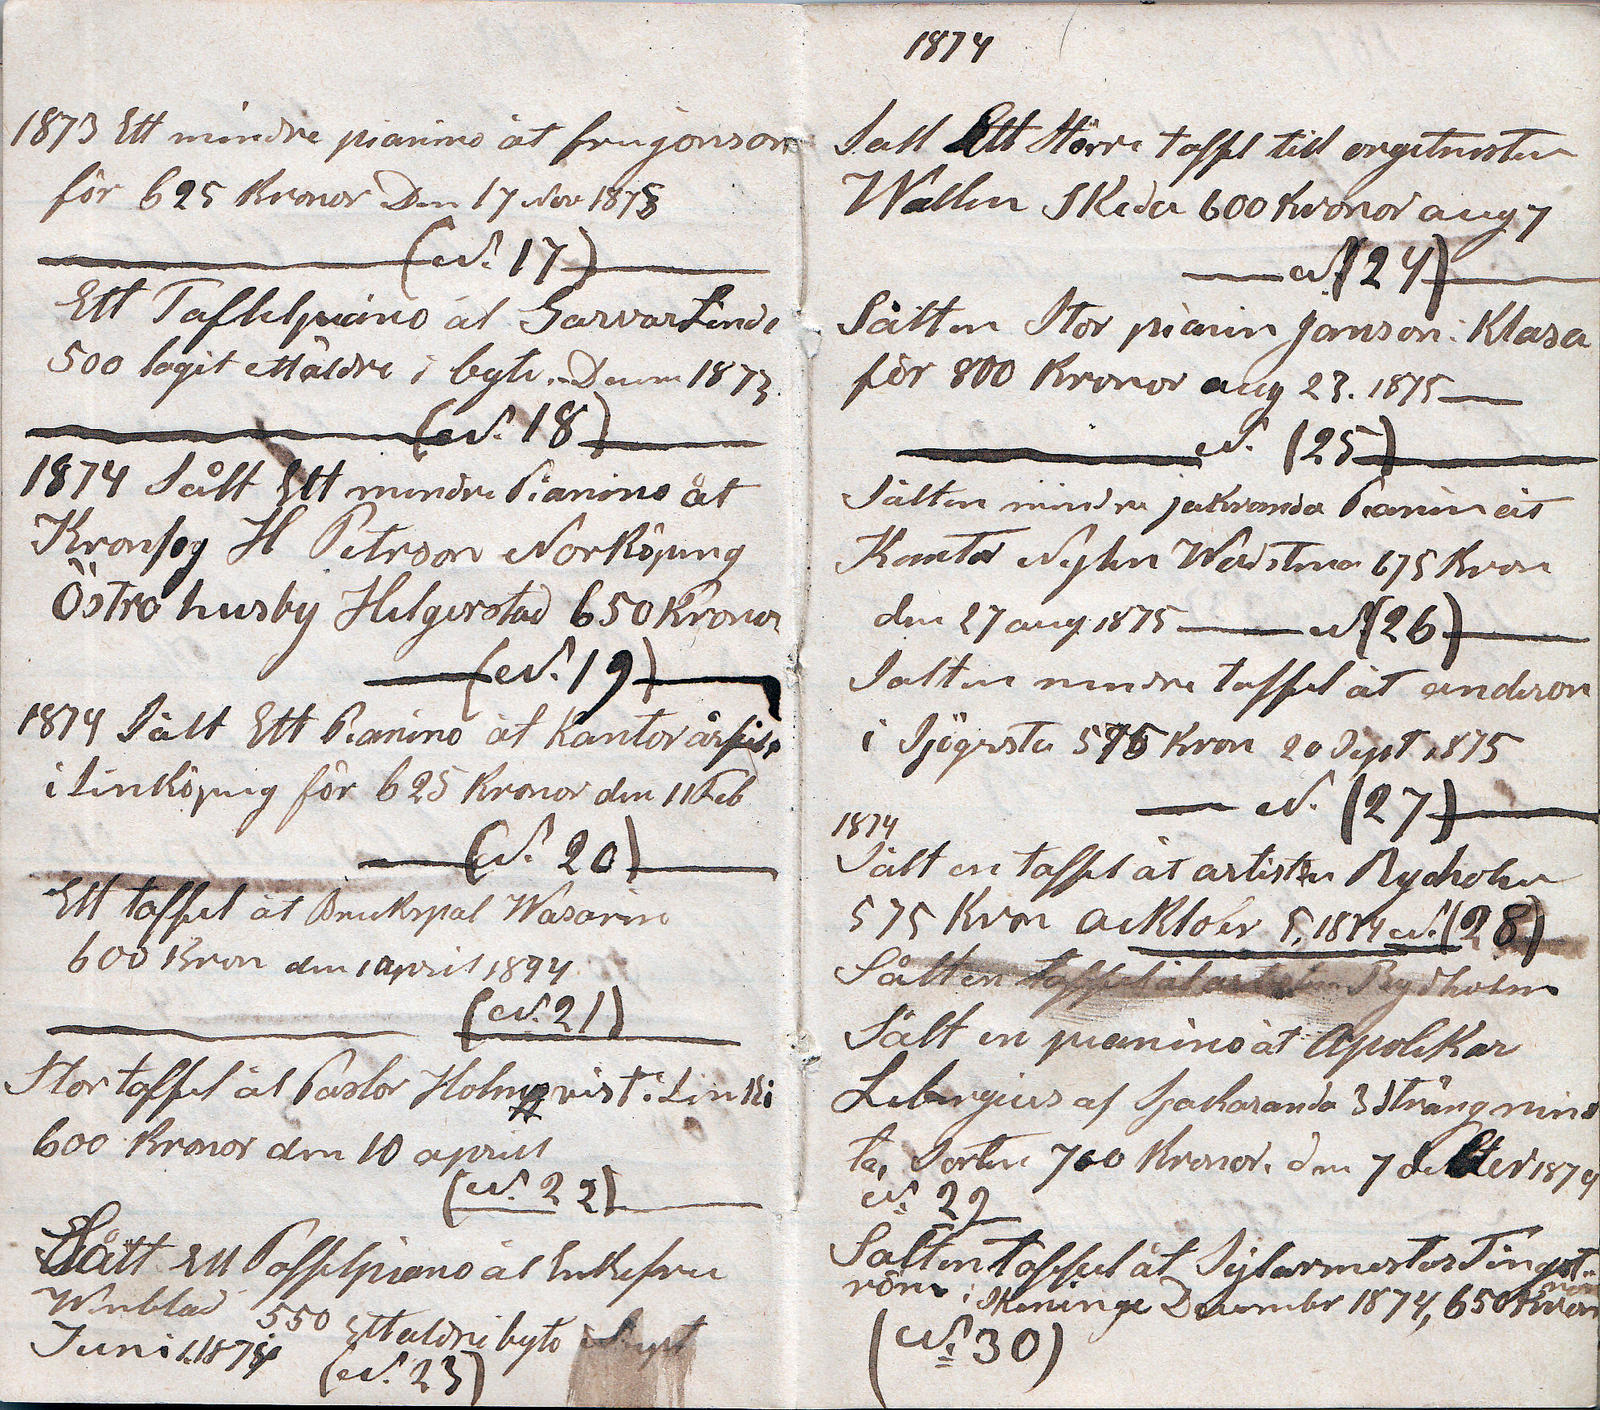 1873 Ett mindre pianino åt frujonson
för 625 Kronor Den 17 Nov 1873
(N. 17)
Ett Taffelpiano åt Garvar Linde
500 tagit ett äldre i byte. Decem 1873
(N. 18)
1874 Sålt Ett mindre Pianino åt
Kronfog H Petrson Norköping
Östra husby Helgerstad 650 Kronor
(N. 19)
1874 Sålt Ett Pianino åt Kantor
i Linköping för 625 Kronor den 11 Feb
(N. 20)
Ett taffel åt Bruckspat
600 Kron den 1 april 1894
(N. 21)
Stor taffel åt Pastor Holmqvist i Linkö
600 Kronor den 10 april
(N. 22)
Sått Ett Taffelpiano åt Enkefru
Winblad 550 Ett äldre i byte
Juni 1.1874
(N. 23)
1874
Salt Ett Större taffel till orgelnisten
Wallen Skeda 600 Kronor aug 7
N (24)
Sålt en Stor pianin Janson i Klasa
för 800 Kronor aug 23. 1875
N. (25)
Sålt en mindre jakranda Pianin åt
Kantor Nylen 675 Kron
den 27 aug 1875 N (26)
Salt en mindre taffel åt anderson
i Sjögesta 575 Kron 20 Sept 1875
N. (27)
1874
Sålt en taffel åt artisten Rydholm
575 Kron acktober 5. 1874 N. (28)
Sålt en taffel åt artisten Rydholm
Sålt en pianino åt Apolekar
af Sjackaranda 3 Sträng
ta, Sorten 700 Kronor. den 7 october 1874
N. 29
Salt en taffel åt Sylarmestor Tingst
röm i Skeninge December 1874, 650 Kronor
(N. 30)